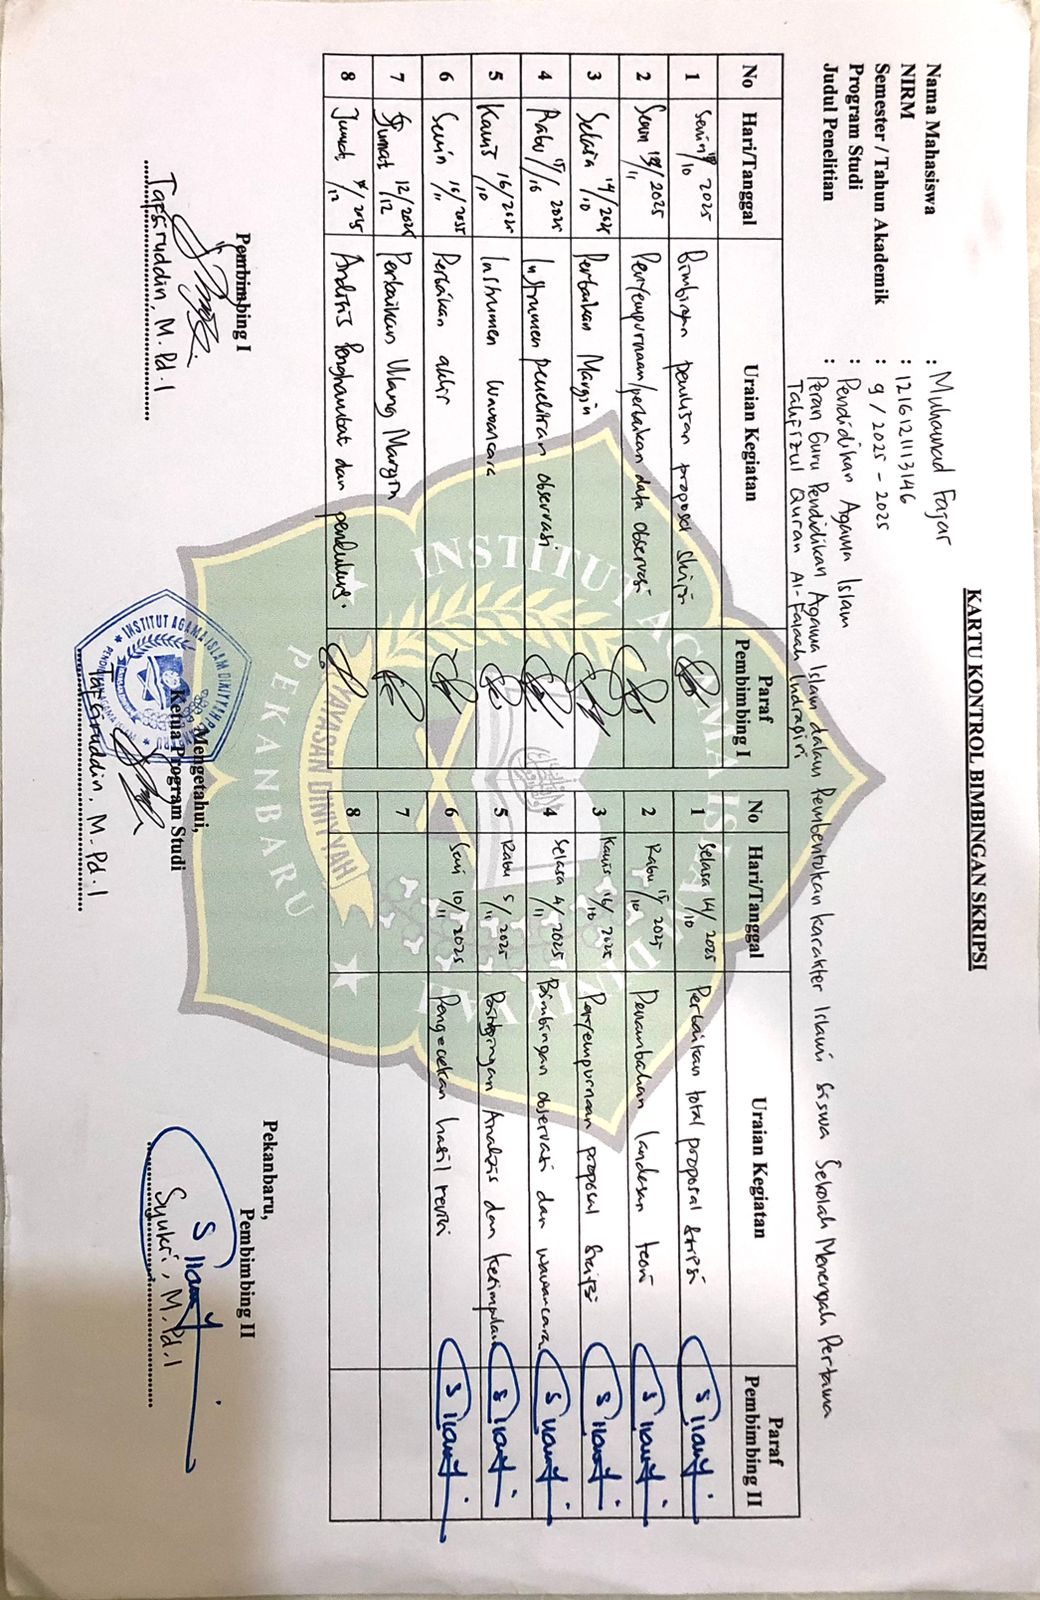 KARTU KONTROL BIMBINGAN SKRIPSI
Nama Mahasiswa : Muhamad Fajar
NIRM : 1216121113146
Semester / Tahun Akademik : 9 / 2025 - 2025
Program Studi : Pendidikan Agama Islam
Judul Penelitian : Peran Guru Pendidikan Agama Islam dalam Pembentukan karakter Islami Siswa Sekolah Menengah Pertama
Tahfizul Quran Al-Kalaah Indragiri
No Hari/Tanggal Uraian Kegiatan Paraf Pembimbing I
1 Senin 2025 Bimbingan penulisan proposal skripsi
2 Senin 2025 Penyempurnaan/perbaikan data observasi
3 Selasa 14/10 2025 Perbaikan Margin
4 Rabu 15/10 2025 Instrumen penelitian observasi
5 Kamis 16/10 2025 Instrumen wawancara
6 Senin 2025 Perbaikan akhir
7 Jumat 12/12 2025 Perbaikan Ulang Margin
8 Jumat 2025 Analisis Penghambat dan pendukung.
No Hari/Tanggal Uraian Kegiatan Paraf Pembimbing II
1 Selasa 14/10 2025 Perbaikan total proposal skripsi
2 Rabu 15/10 2025 Penambahan landasan teori
3 Kamis 16/10 2025 Penyempurnaan proposal skripsi
4 Selasa 4/11 2025 Bimbingan observasi dan wawancara
5 Rabu 5/11 2025 Bimbingan Analisis dan kesimpulan
6 Seni 10/11 2025 Pengecekan hasil revisi
7
8
Pekanbaru,
Pembimbing I
Tafsiruddin, M.Pd.I
Pembimbing II
Syukri, M.Pd.I
Mengetahui,
Ketua Program Studi
Tafsiruddin, M.Pd.I
INSTITUT AGAMA ISLAM DINIYYAH
PEKANBARU
YAYASAN DINIYYAH
INSTITUT AGAMA ISLAM DINIYYAH